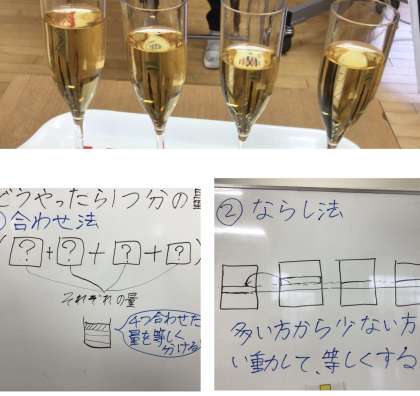 どうやったら1つ分の量
①合わせ法
(?+?+?+?)
それぞれの量
4つ合わせた
量を等しく
分ける
②ならし法
多い方から少ない方
い動して、等しくする